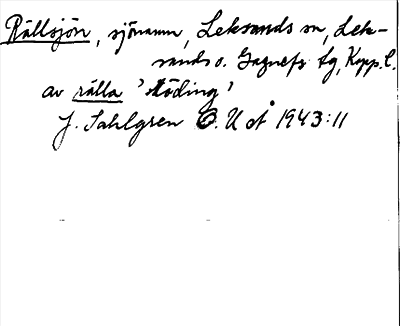 Rällsjön, sjönamn, Leksands sn, Lek-
sands o. Gagnefs tg, Kopp. l.
av rälla 'röding'
J. Sahlgren O. U Å 1943:11